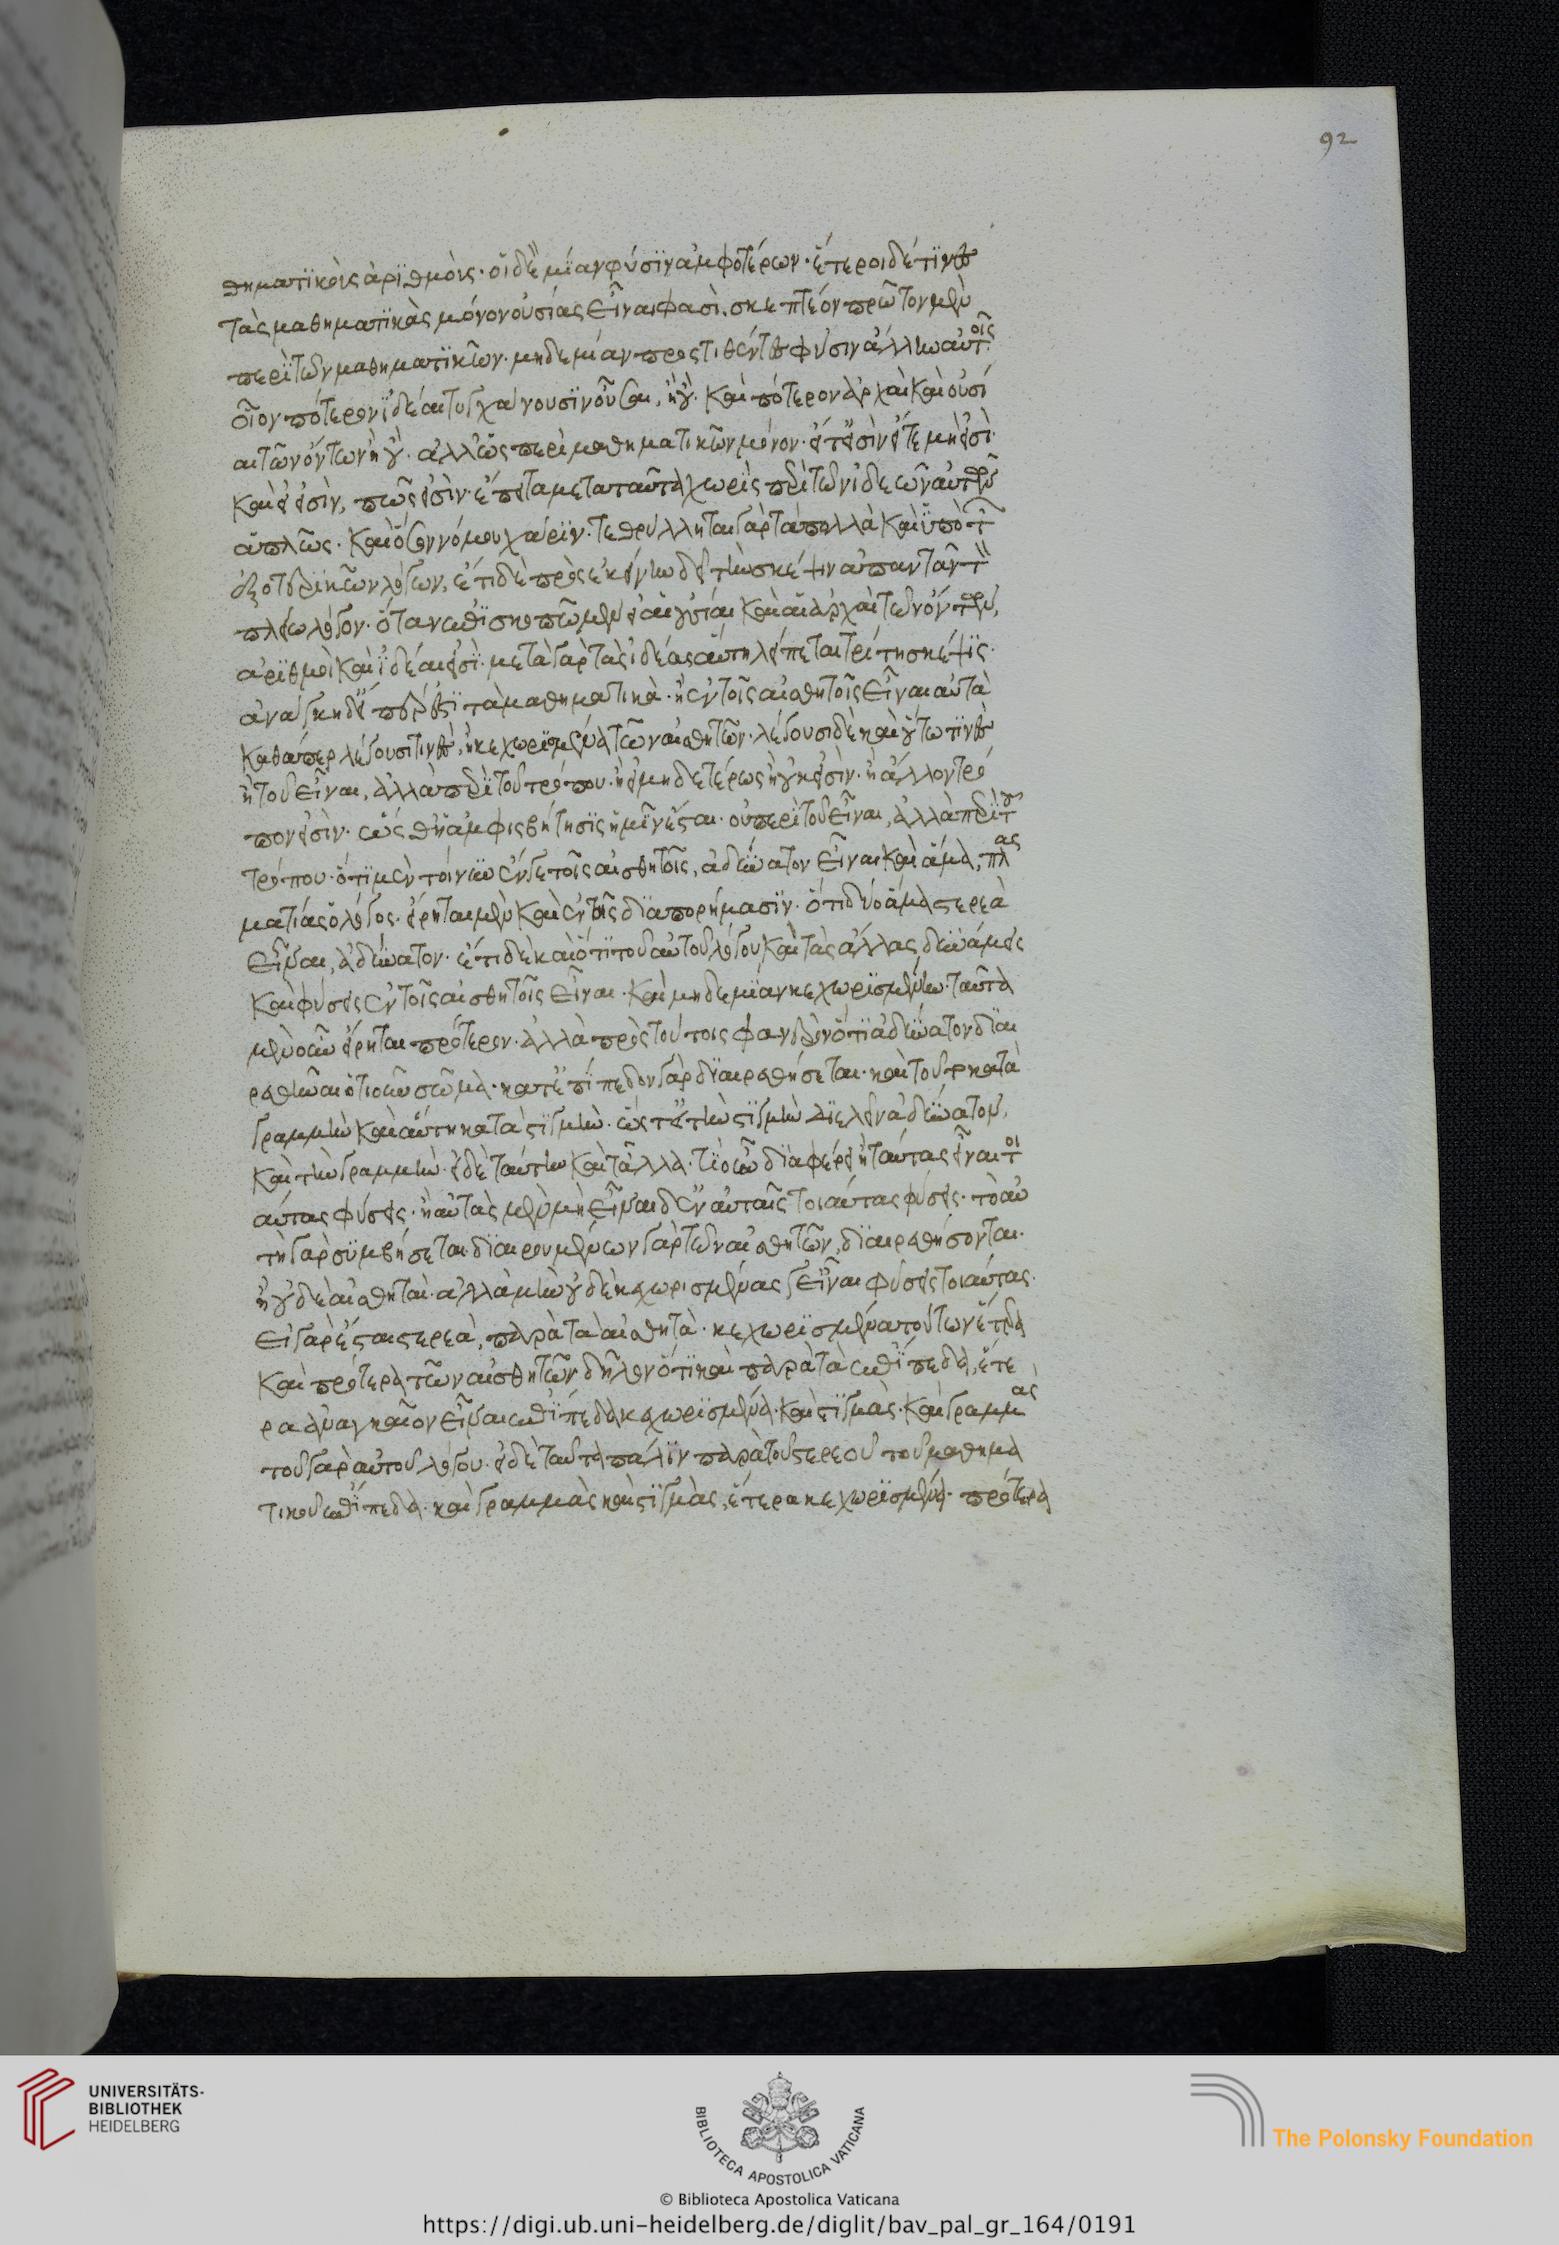 92
θηματικοὺς ἀριθμούς· οἱ δὲ μίαν φύσιν ἀμφοτέρων· ἕτεροι δέ τινες
τὰς μαθηματικὰς μόνον οὐσίας εἶναι φασὶ. σκεπτέον πρῶτον μὲν
περὶ τῶν μαθηματικῶν· μηδεμίαν προστιθέντας φύσιν ἄλλην αὐτοῖς
οἷον πότερον ἰδέαι τυγχάνουσιν οὖσαι, ἢ οὔ· καὶ πότερον ἀρχαὶ καὶ οὐσί
αι τῶν ὄντων ἢ οὔ· ἀλλ' ὡς περὶ μαθηματικῶν μόνον· εἴτ' εἰσὶν εἴτε μή εἰσι·
καὶ εἰ εἰσὶν, πῶς εἰσὶν· ἔπειτα μετὰ ταῦτα χωρὶς περὶ τῶν ἰδεῶν αὐτῶν
ἁπλῶς· καὶ ὅσον νόμου χάριν· τεθρύλληται γὰρ τὰ πολλὰ καὶ ὑπὸ τῶν
ἐξωτερικῶν λόγων, ἔτι δὲ πρὸς ἐκείνην δεῖ τὴν σκέψιν ἀπαντᾶν τὸν
πλείω λόγον· ὅταν ἐπισκοπῶμεν εἰ αἱ οὐσίαι καὶ αἱ ἀρχαὶ τῶν ὄντων,
ἀριθμοὶ καὶ ἰδέαι εἰσί· μετὰ γὰρ τὰς ἰδέας αὕτη λείπεται τρίτη σκέψις·
ἀνάγκη δ' εἴπερ ἐστὶ τὰ μαθηματικὰ· ἢ ἐν τοῖς αἰσθητοῖς εἶναι αὐτὰ
καθάπερ λέγουσί τινες, ἢ κεχωρισμένα τῶν αἰσθητῶν· λέγουσι δὲ καὶ οὕτω τινές
ἢ τοῦ εἶναι, ἀλλὰ περὶ τοῦ τρόπου· ἢ εἰ μηδετέρως ἢ οὐκ εἰσὶν· ἢ ἄλλον τρό
πον εἰσὶν· ὥσθ' ἡ ἀμφισβήτησις ἡμῖν ἔσται· οὐ περὶ τοῦ εἶναι, ἀλλὰ περὶ τοῦ
τρόπου· ὅτι μὲν τοίνυν ἔν γε τοῖς αἰσθητοῖς, ἀδύνατον εἶναι καὶ ἅμα, πλας
ματίας ὁ λόγος· εἴρηται μὲν καὶ ἐν τοῖς διαπορήμασιν· ὅτι δύο ἅμα στερεὰ
εἶναι, ἀδύνατον· ἔτι δὲ καὶ ὅτι τοῦ αὐτοῦ λόγου καὶ τὰς ἄλλας δυνάμεις
καὶ φύσεις ἐν τοῖς αἰσθητοῖς εἶναι· καὶ μηδεμίαν κεχωρισμένην· ταῦτα
μὲν οὖν εἴρηται πρότερον· ἀλλὰ πρὸς τούτοις φανερὸν ὅτι ἀδύνατον διαι
ρεθῆναι ὁτιοῦν σῶμα· κατ' ἐπίπεδον γὰρ διαιρεθήσεται· καὶ τοῦτο κατὰ
γραμμὴν καὶ αὕτη κατὰ στιγμὴν· ὥστ' εἰ τὴν στιγμὴν διελεῖν ἀδύνατον,
καὶ τὴν γραμμὴν· εἰ δὲ ταύτην καὶ τἆλλα· τί οὖν διαφέρει ἢ ταύτας εἶναι τοι
αύτας φύσεις· ἢ αὐτὰς μὲν μὴ εἶναι δ' ἐν αὐταῖς τοιαύτας φύσεις· τὸ αὐ
τὸ γὰρ συμβήσεται· διαιρουμένων γὰρ τῶν αἰσθητῶν, διαιρεθήσονται·
ἢ οὐδὲ αἰσθηταὶ· ἀλλὰ μὴν οὐδὲ κεχωρισμένας γ' εἶναι φύσεις τοιαύτας·
εἰ γὰρ ἔσται στερεὰ, παρὰ τὰ αἰσθητὰ· κεχωρισμένα τούτων ἕτερα
καὶ πρότερα τῶν αἰσθητῶν δῆλον ὅτι καὶ παρὰ τὰ ἐπίπεδα, ἕτε
ρα ἀναγκαῖον εἶναι ἐπίπεδα κεχωρισμένα· καὶ στιγμὰς· καὶ γραμμὰς
τοῦ γὰρ αὐτοῦ λόγου· εἰ δὲ ταῦτα πάλιν παρὰ τοῦ στερεοῦ τοῦ μαθημα
τικοῦ ἐπίπεδα· καὶ γραμμὰς καὶ στιγμὰς, ἕτερα κεχωρισμένα· πρότερα
UNIVERSITÄTS-
BIBLIOTHEK
HEIDELBERG
BIBLIOTECA APOSTOLICA VATICANA
The Polonsky Foundation
© Biblioteca Apostolica Vaticana
https://digi.ub.uni-heidelberg.de/diglit/bav_pal_gr_164/0191